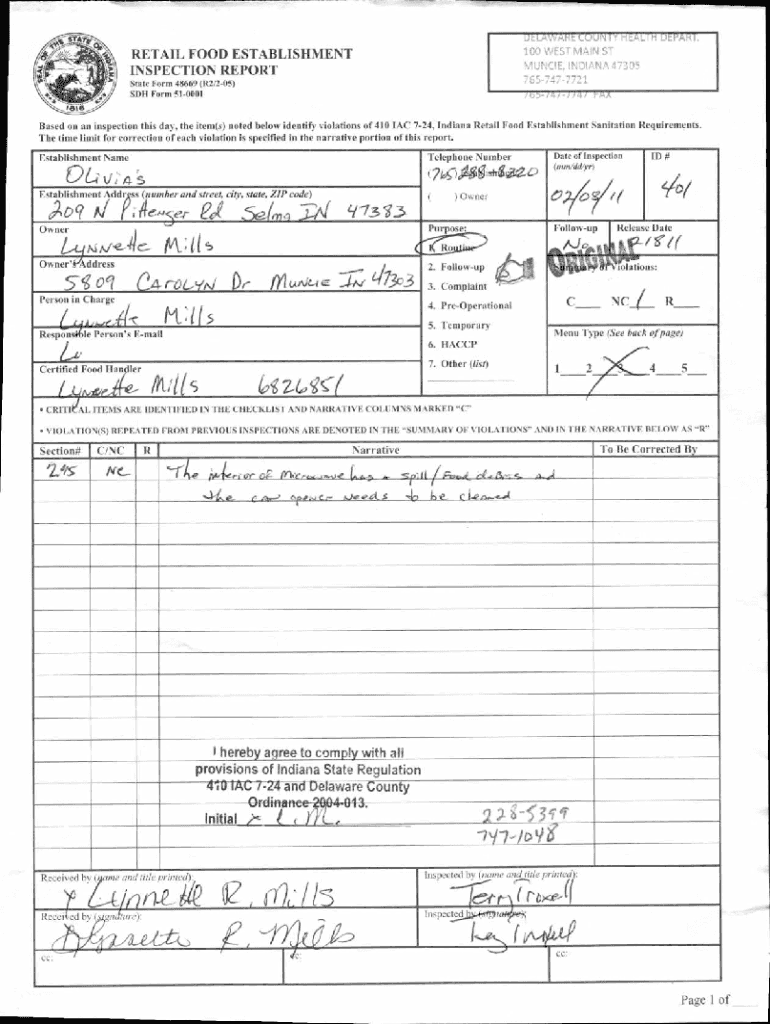 DELAWARE COUNTY HEALTH DEPART.
100 WEST MAIN ST
MUNCIE, INDIANA 47305
765-747-7721
765-747-7747 FAX
SEAL OF THE STATE OF INDIANA
1816
RETAIL FOOD ESTABLISHMENT
INSPECTION REPORT
State Form 48669 (R2/2-05)
SDH Form 51-0001
Based on an inspection this day, the item(s) noted below identify violations of 410 IAC 7-24, Indiana Retail Food Establishment Sanitation Requirements.
The time limit for correction of each violation is specified in the narrative portion of this report.
Establishment Name
Olivia's
Telephone Number
(765) 288-8320
Date of Inspection
(mm/dd/yr)
02/08/11
ID #
401
Establishment Address (number and street, city, state, ZIP code)
209 N Pittenger Rd Selma IN 47383
( ) Owner
Owner
Lynnette Mills
Purpose:
1. Routine
2. Follow-up
3. Complaint
4. Pre-Operational
5. Temporary
6. HACCP
7. Other (list)
Follow-up
No
Release Date
ORIGINAL
Summary of Violations:
C NC / R
Owner's Address
5809 Carolyn Dr Muncie IN 47303
Person in Charge
Lynnette Mills
Responsible Person's E-mail
Menu Type (See back of page)
1 2 3 4 5
Certified Food Handler
Lynnette Mills 6826851
• CRITICAL ITEMS ARE IDENTIFIED IN THE CHECKLIST AND NARRATIVE COLUMNS MARKED "C"
• VIOLATION(S) REPEATED FROM PREVIOUS INSPECTIONS ARE DENOTED IN THE "SUMMARY OF VIOLATIONS" AND IN THE NARRATIVE BELOW AS "R"
Section# C/NC R Narrative To Be Corrected By
295 NC The interior of Microwave has a spill/Food debris and
the can opener needs to be cleaned
I hereby agree to comply with all
provisions of Indiana State Regulation
410 IAC 7-24 and Delaware County
Ordinance 2004-013.
Initial x L.M.
228-5399
747-1048
Received by (name and title printed):
x Lynnette R. Mills
Inspected by (name and title printed):
Terry Troxell
Received by (signature):
Lynnette R. Mills
Inspected by (signature):
Terry Troxell
cc: cc: cc:
Page 1 of